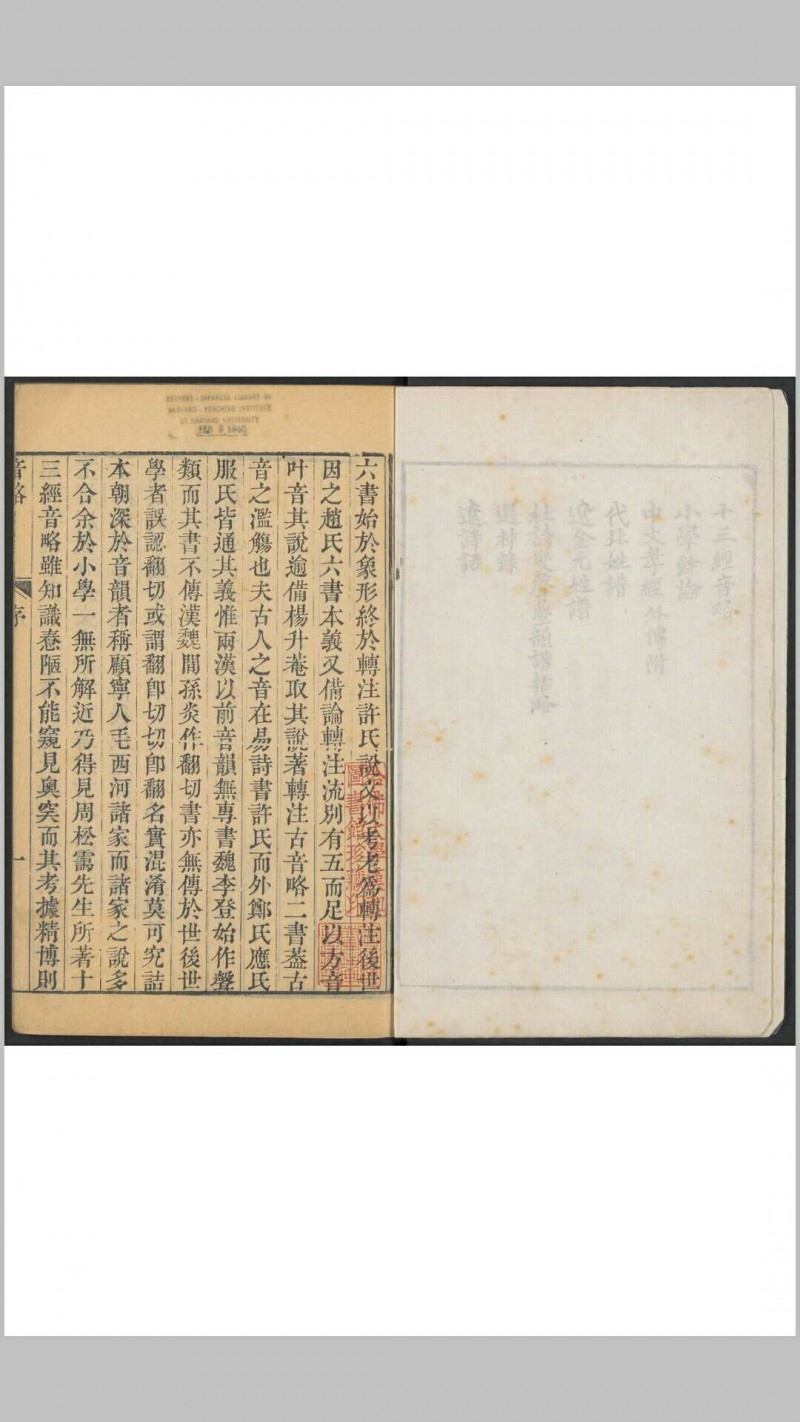 六書始於象形終於轉注許氏說文以考老爲轉注後世
因之趙氏六書本義又備論轉注流別有五而足以方音
叶音其說逾備楊升菴取其說著轉注古音略二書葢古
音之濫觴也夫古人之音在易詩書許氏而外鄭氏應氏
服氏皆通其義惟兩漢以前音韻無專書魏李登始作聲
類而其書不傳漢魏間孫炎作翻切書亦無傳於世後世
學者誤認翻切或謂翻卽切切卽翻名實混淆莫可究詰
本朝深於音韻者稱顧寧人毛西河諸家而諸家之說多
不合余於小學一無所解近乃得見周松靄先生所著十
三經音略雖知識惷陋不能窺見奧突而其考據精博則
音略 序 一
十三經音略
小學餘論
中文孝經外傳附
代北姓譜
遼金元姓譜
遼詩話